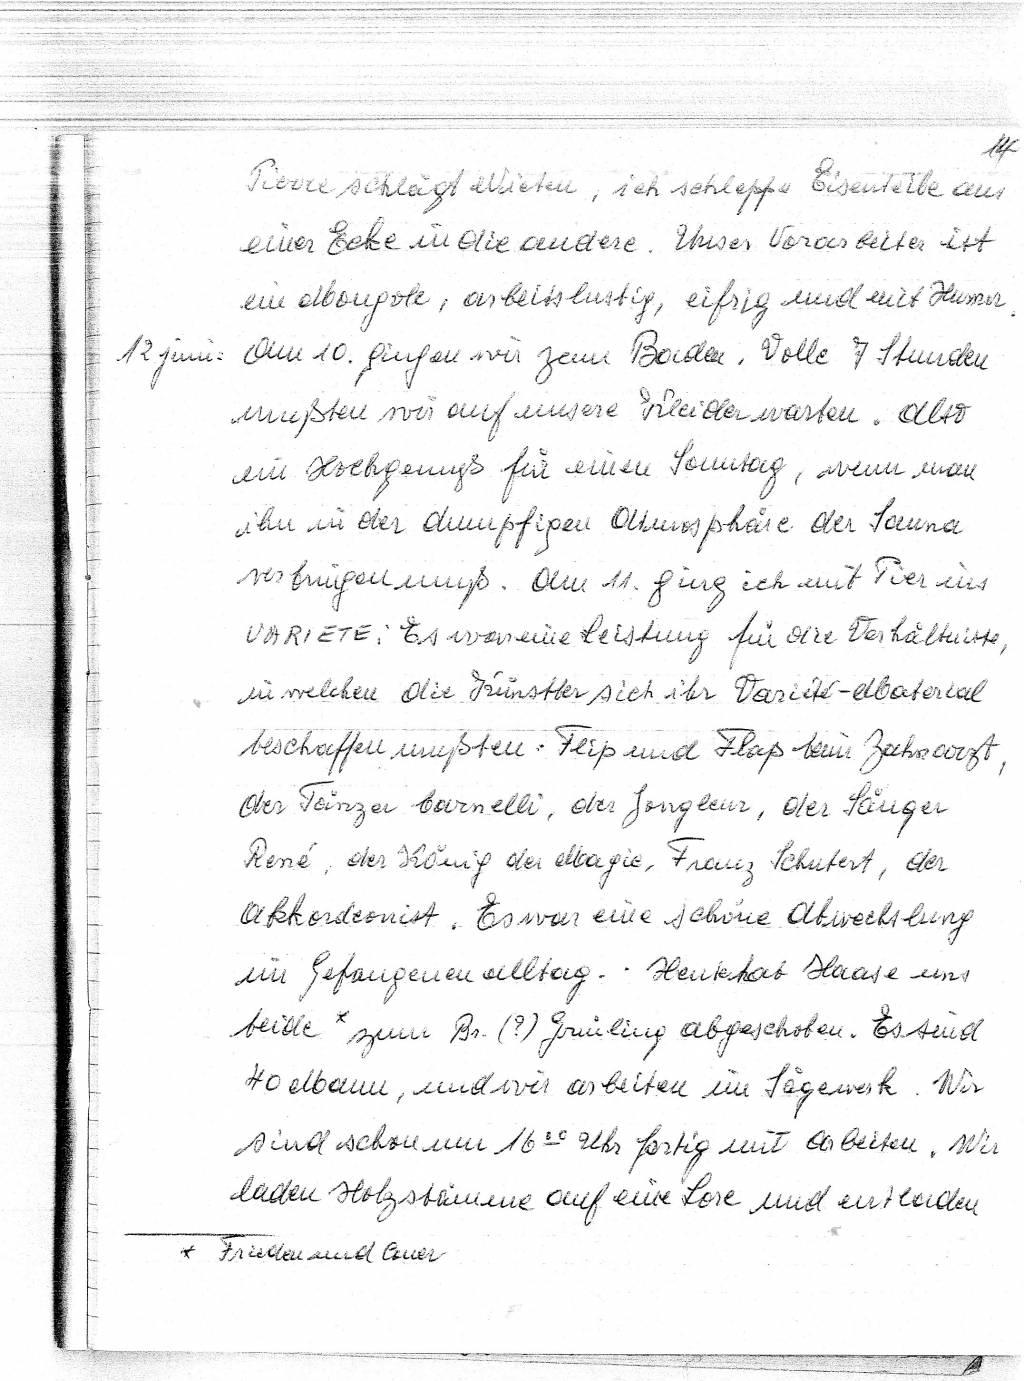 14
Pierre schlägt Nieten, ich schleppe Eisenteile aus
einer Ecke in die andere. Unser Vorarbeiter ist
ein Mongole, arbeitslustig, eifrig und mit Humor.
12 juni: Am 10. gingen wir zum Baden. Volle 7 Stunden
mußten wir auf unsere Kleider warten. Also
ein Hochgenuß für einen Sonntag, wenn man
ihn in der dumpfigen Atmosphäre der Sauna
verbringen muß. Am 11. ging ich mit Pier ins
VARIETE: Es war eine Leistung für die Verhältnisse,
in welchen die Künstler sich ihr Varieté-Material
beschaffen mußten. Flip und Flap beim Zahnarzt,
der Tänzer Carnelli, der Jongleur, der Sänger
René, der König der Magie, Franz Schubert, der
Akkordeonist. Es war eine schöne Abwechslung
im Gefangenenalltag. Heute hat Haase uns
beide * zum Br. (?) Grüling abgeschoben. Es sind
40 Mann, und wir arbeiten im Sägewerk. Wir
sind schon um 16 30 Uhr fertig mit Arbeiten. Wir
laden Holzstämme auf eine Lore und entladen
* Frieden und